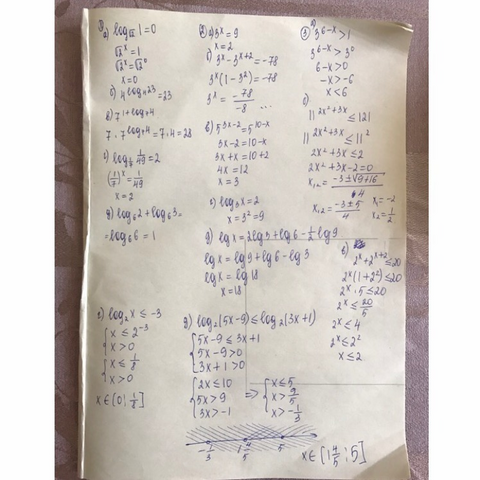 ①
а) log√2 1=0
√2^x = 1
√2^x = √2^0
x = 0
б) 4^log4 23 = 23
в) 7^1+log7 4
7 · 7^log7 4 = 7·4 = 28
г) log1/7 1/49 = 2
(1/7)^x = 1/49
x = 2
д) log6 2 + log6 3 =
= log6 6 = 1
② а) 3^x = 9
x = 2
б) 3^x - 3^x+2 = -78
3^x (1-3^2) = -78
3^x = -78/-8 ...
в) 5^3x-2 = 5^10-x
3x-2 = 10-x
3x+x = 10+2
4x = 12
x = 3
г) log3 x = 2
x = 3^2 = 9
д) lg x = 2lg3 + lg6 - 1/2 lg9
lg x = lg9 + lg6 - lg3
lg x = lg 18
x = 18
③ а)
3^6-x > 1
3^6-x > 3^0
6-x > 0
-x > -6
x < 6
б)
11^2x²+3x ≤ 121
11^2x²+3x ≤ 11^2
2x²+3x ≤ 2
2x²+3x-2=0
x1,2 = -3±√9+16 / 4
x1,2 = -3±5 / 4 x1 = -2
x2 = 1/2
в)
2^x + 2^x+2 ≤ 20
2^x (1+2^2) ≤ 20
2^x · 5 ≤ 20
2^x ≤ 20/5
2^x ≤ 4
2^x ≤ 2^2
x ≤ 2
г) log2 x ≤ -3
{ x ≤ 2^-3
x > 0
{ x ≤ 1/8
x > 0
x ∈ (0; 1/8]
д) log2 (5x-9) ≤ log2 (3x+1)
{ 5x-9 ≤ 3x+1
5x-9 > 0
3x+1 > 0
{ 2x ≤ 10
5x > 9
3x > -1
=> { x ≤ 5
x > 9/5
x > -1/3
-1/3 1 4/5 5
x ∈ (1 4/5; 5]